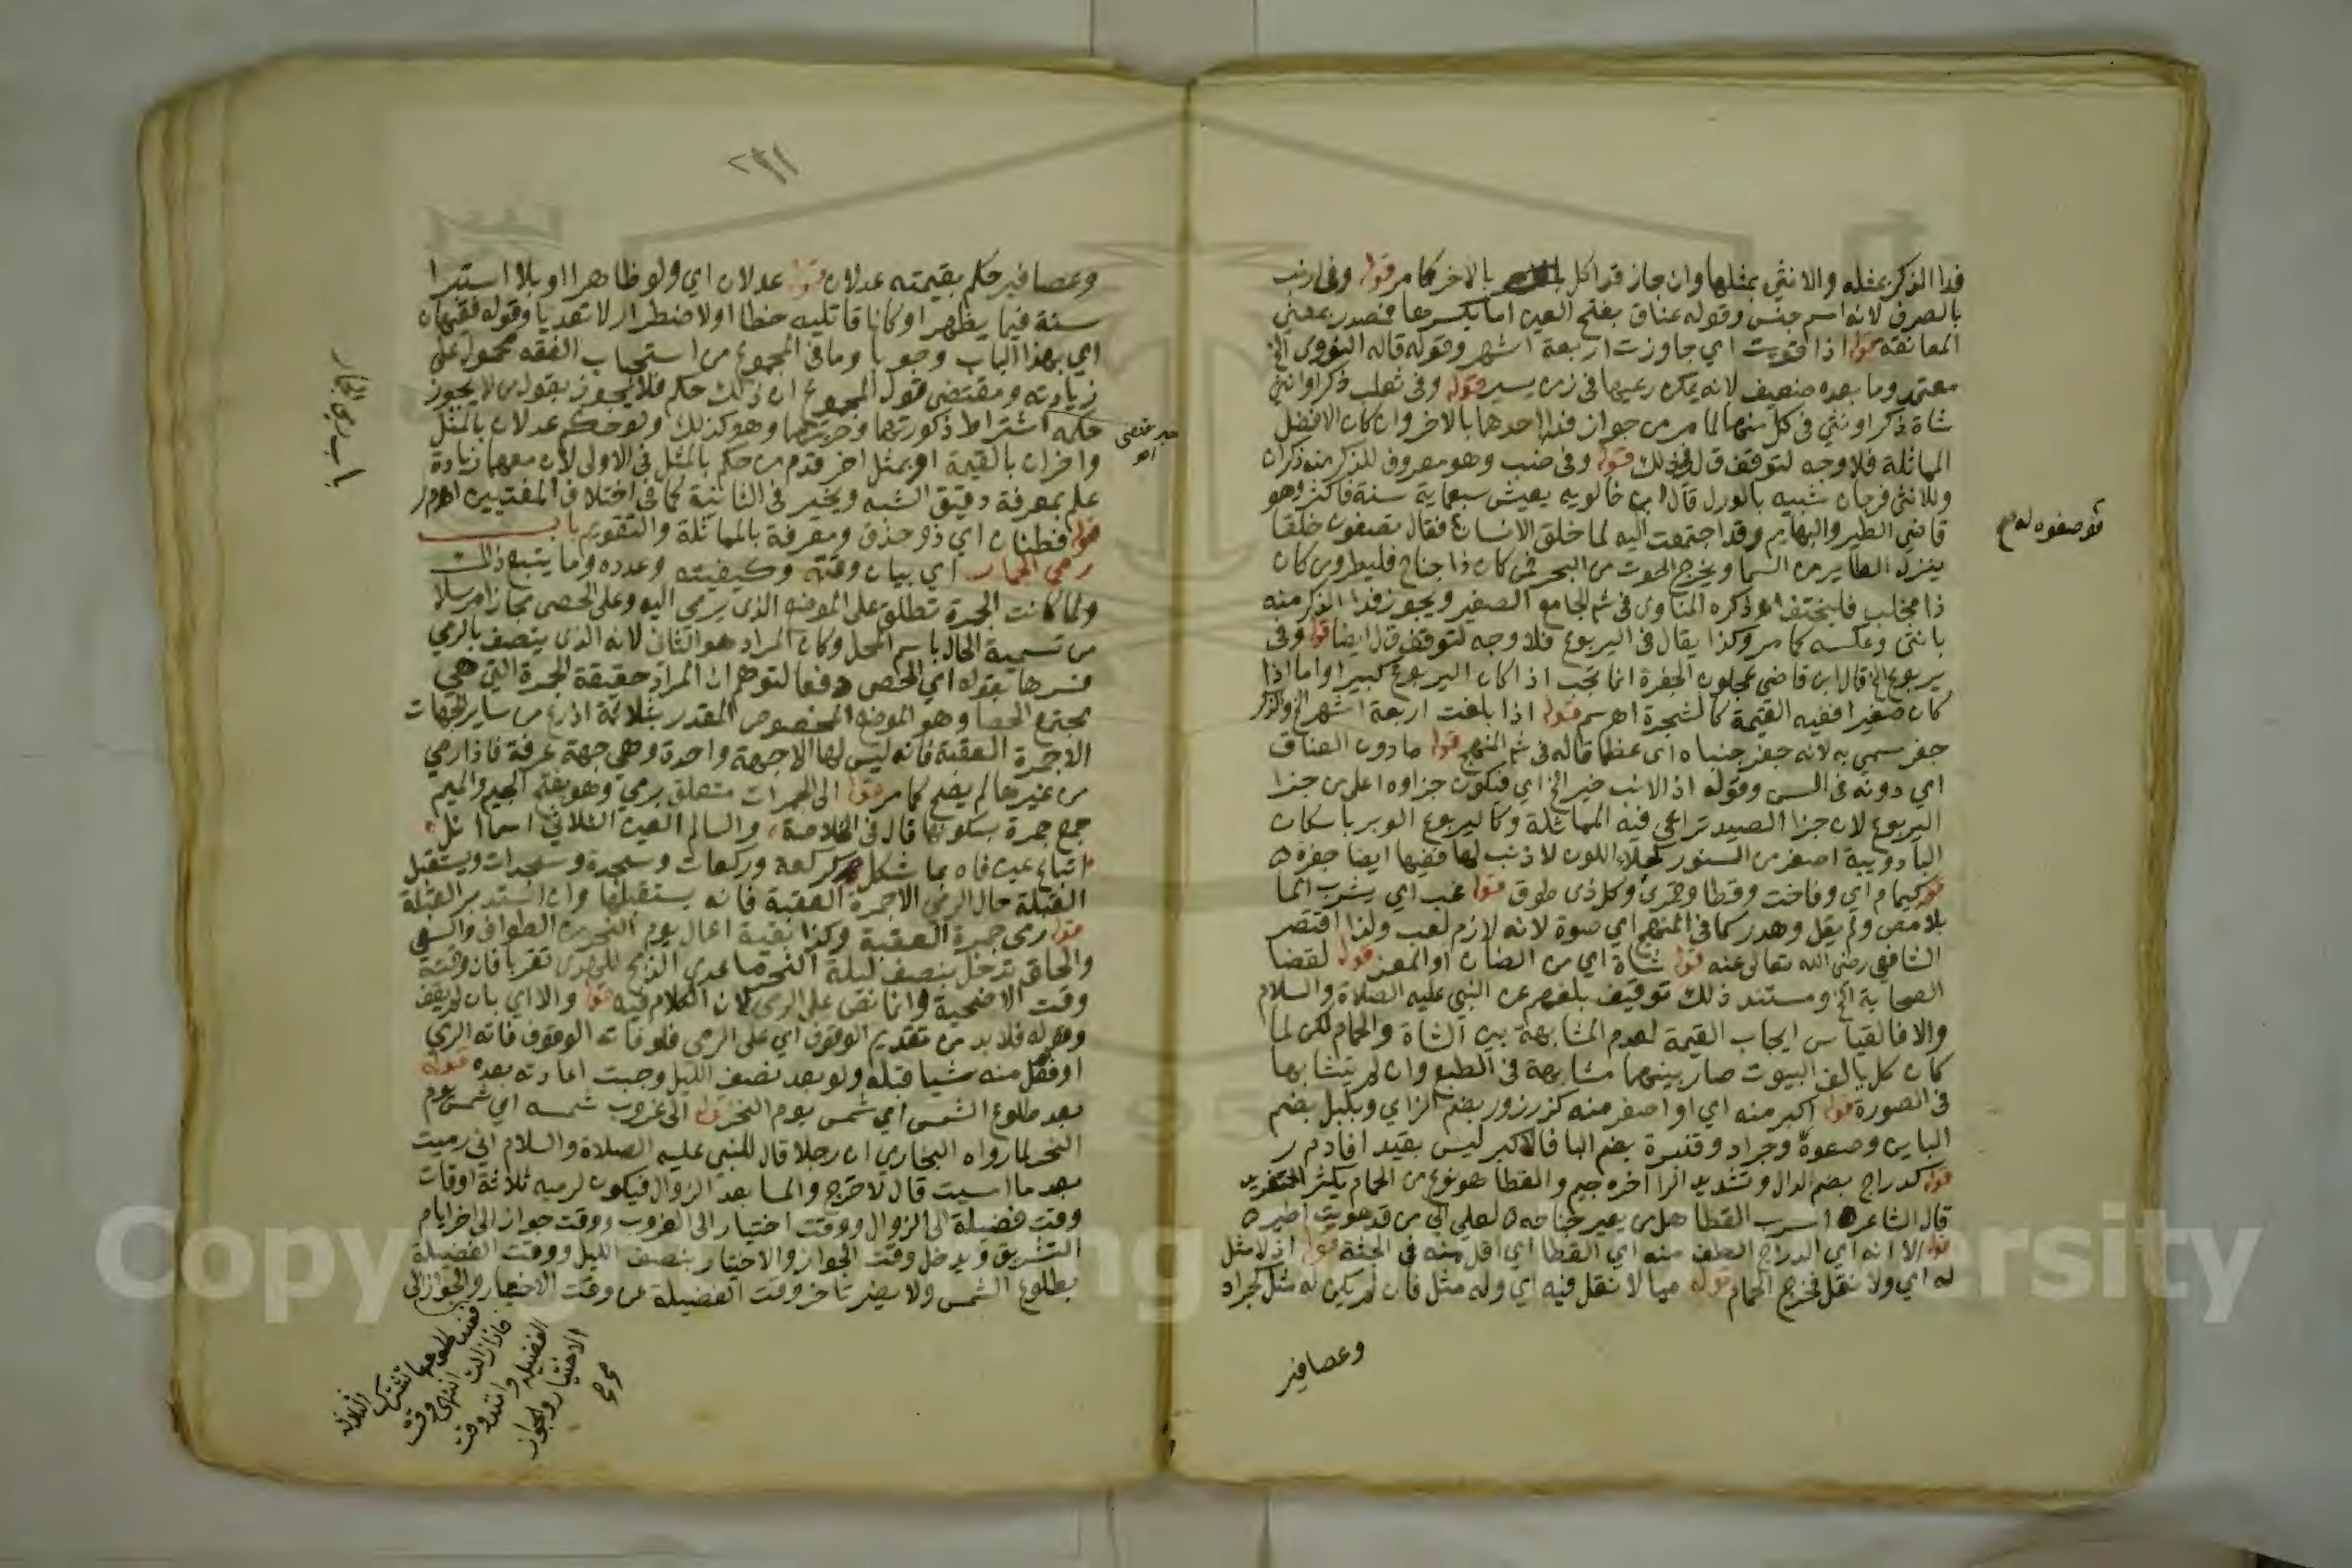 فدا الذكر بمثله والانثى بمثلها وان جاز فدا كل بالاخر كما مر قوله وفى ارنب
بالصرف لانه اسم جنس وقوله عناق بفتح العين اما بكسرها فمصدر بمعنى
المعانقة قوله اذا قويت اي جاوزت اربعة اشهر وقوله قاله النووى الخ
معتمد وما بعده ضعيف لانه يمكن رعيها فى زمن يسير قوله وفى ثعلب ذكرا وانثى
شاة ذكر او نثى فى كل منهما لما مر من جواز فدا احدهما بالاخر وان كان الافضل
المماثلة فلا وجه لتوقف ق ل فى ذلك قوله وفى ضب وهو معروف للذكر منه ذكران
وللانثى فرجان شبيه بالورل قال ابن خالويه يعيش سبعماية سنة فاكثر وهو
قاضي الطير والبهايم وقد اجتمعت اليه لما خلق الانسان فقال تصفون خلقا
ينزل الطاير من السما ويخرج الحوت من البحر فمن كان ذا جناح فليطر ومن كان
ذا مخلب فليختف اه ذكره المناوى فى شم الجامع الصغير ويجوز فدا الذكر منه
بانثى وعكسه كما مر وكذا يقال فى اليربوع فلا وجه لتوقف ق ل ايضا قوله وفى
يربوع الخ قال ابن قاضي عجلون الجفرة انما تجب اذا كان اليربوع كبيرا واما اذا
كان صغيرا ففيه القيمة كالشجرة اهـ سم قوله اذا بلغت اربعة اشهر الخ والذكر
جفر سمي به لانه جفر جنباه اى عظما قاله فى شم المنهج قوله ما دون العناق
اي دونه فى السن وقوله اذ الارنب خير الخ اي فيكون جزاوه اعلى من جزا
اليربوع لان جزا الصيد تراعى فيه المماثلة وكاليربوع الوبر باسكان
البا دويبة اصغر من السنور كحلا اللون لا ذنب لها ففيها ايضا جفرة
قوله كيمام اي وفاخت وقطا وقمرى وكل ذى طوق قوله عب اي يشرب الما
بلا مص ولم يقل وهدر كما فى المنهج اي صوة لانه لازم لعب ولذا اقتصر
الشافعي رضي الله تعالى عنه قوله شاة اي من الضان او المعز قوله لقضا
الصحابة الخ ومستند ذلك توقيف بلغهم عن النبي عليه الصلاة والسلام
والا فالقياس ايجاب القيمة لعدم المشابهة بين الشاة والحمام لكن لما
كان كل يالف البيوت صار بينهما مشابهة فى الطبع وان لم يتشابها
فى الصورة قوله اكبر منه اي او اصغر منه كزرزور بضم الزاي وبلبل بضم
الباين وصعوة وجراد وقنبرة بضم البا فالاكبر ليس بقيد افاده م ر
قوله كدراج بضم الدال وتشديد الرا اخره جيم والقطا هو نوع من الحمام يكثر التغريد
قال الشاعر اسرب القطا هل من يعير جناحه لعلي الي من قد هويت اطير
قوله الا انه اي الدراج الطف منه اي القطا اي اقل منه فى الجثة قوله اذ لا مثل
له اي ولا نقل فخرج الحمام قوله فيما لا نقل فيه اي وله مثل فان لم يكن له مثل كجراد
وعصافير
وعصافير حكم بقيمته عدلان قوله عدلان اي ولو ظاهرا او بلا استبرا
سنة فيما يظهر او كانا قاتليه خطا او لاضطرار لا تعديا وقوله فقيهان
اي بهذا الباب وجوبا وما فى المجموع من استحباب الفقه محمول على
زيادته ومقتضى قول المجموع ان ذلك حكم فلا يجوز بقول من لا يجوز
حكمه اشتراط ذكورتهما وحريتهما وهو كذلك ولو حكم عدلان بالمثل
واخران بالقيمة او بمثل اخر قدم من حكم بالمثل فى الاولى لان معهما زيادة
علم بمعرفة دقيق الشبه ويخير فى الثانية كما فى اختلاف المفتيين اهـ م ر
قوله فطنان اي ذو حذق ومعرفة بالمماثلة والتقويم باب
رمي الجمار اي بيان وقته وكيفيته وعدده وما يتبع ذلك
ولما كانت الجمرة تطلق على الموضع الذى يرمى اليه وعلى الحصى مجازا مرسلا
من تسمية الحال باسم المحل وكان المراد هو الثانى لانه الذى يتصف بالرمي
فسرها بقوله اي الحصى دفعا لتوهم ان المراد حقيقة الجمرة التي هي
مجتمع الحصا وهو الموضع المخصوص المقدر بثلاثة اذرع من ساير الجهات
الا جمرة العقبة فانه ليس لها الا جهة واحدة وهى جهة عرفة فاذا رمي
من غيرها لم يصح كما مر قوله الى الجمرات متعلق برمي وهو بفتح الجيم والميم
جمع جمرة بسكونها قال فى الخلاصة والسالم العين الثلاثي اسما انل
اتباع عين فاه بما شكل كركعة وركعات وسجدة وسجدات ويستقبل
القبلة حال الرمي الا جمرة العقبة فانه يستقبلها وان استدبر القبلة
قوله رمى جمرة العقبة وكذا بقية اعمال يوم النحر من الطواف والسعي
والحلق تدخل بنصف ليلة النحر ما عدي الذبح للهدى تقربا فان وقته
وقت الاضحية وانما نص على الرمى لان الكلام فيه قوله والا اي بان لم يقف
وقوله فلا بد من تقديم الوقوف اي على الرمي فلو فاته الوقوف فاته الرمي
او فعل منه شيا قبله ولو بعد نصف الليل وجبت اعادته بعده قوله
بعد طلوع الشمس اي شمس يوم النحر قوله الى غروب شمسه اي شمس يوم
النحر لما رواه البخاري ان رجلا قال للنبي عليه الصلاة والسلام اني رميت
بعد ما امسيت قال لا حرج والمسا بعد الزوال فيكون لرميه ثلاثة اوقات
وقت فضيلة الى الزوال ووقت اختيار الى الغروب ووقت جواز الى اخر ايام
التشريق ويدخل وقت الجواز والاختيار بنصف الليل ووقت الفضيلة
بطلوع الشمس ولا يضر تاخر وقت الفضيلة عن وقت الاختيار والجواز الى
باب رمي الجمار
فاذا زالت انتهى وقت
الفضيلة
الاختيار والجواز